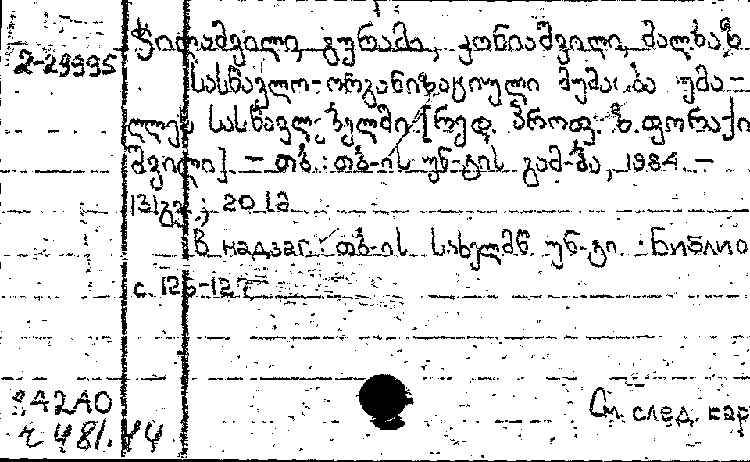 ჭილაშვილი, გურამი, კონიაშვილი, მალხაზ
2-29995
სასწავლო-ორგანიზაციული მუშაობა უმა-
ღლეს სასწავლებელში [რედ. პროფ. ზ. ფორაქი
შვილი] - თბ.: თბ-ის უნ-ტის გამ-ბა, 1984. -
131გვ.; 20 სმ
В надзаг.: თბ-ის სახელმწ უნ-ტი. Библио
с. 126-127
442AO
481.44
См. след. кар